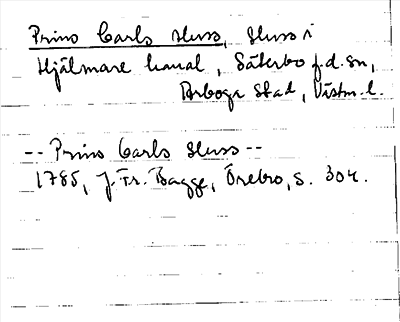 Prins Carls sluss, sluss i
Hjälmare kanal, Säterbo f.d. sn,
Arboga stad, Västm. l.
-- Prins Carls sluss --
1785, J. Fr. Bagge, Örebro, s. 304.